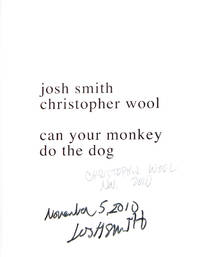 josh smith
christopher wool
can your monkey
do the dog
CHRISTOPHER WOOL
Nov. 2010
November 5, 2010
Josh Smith